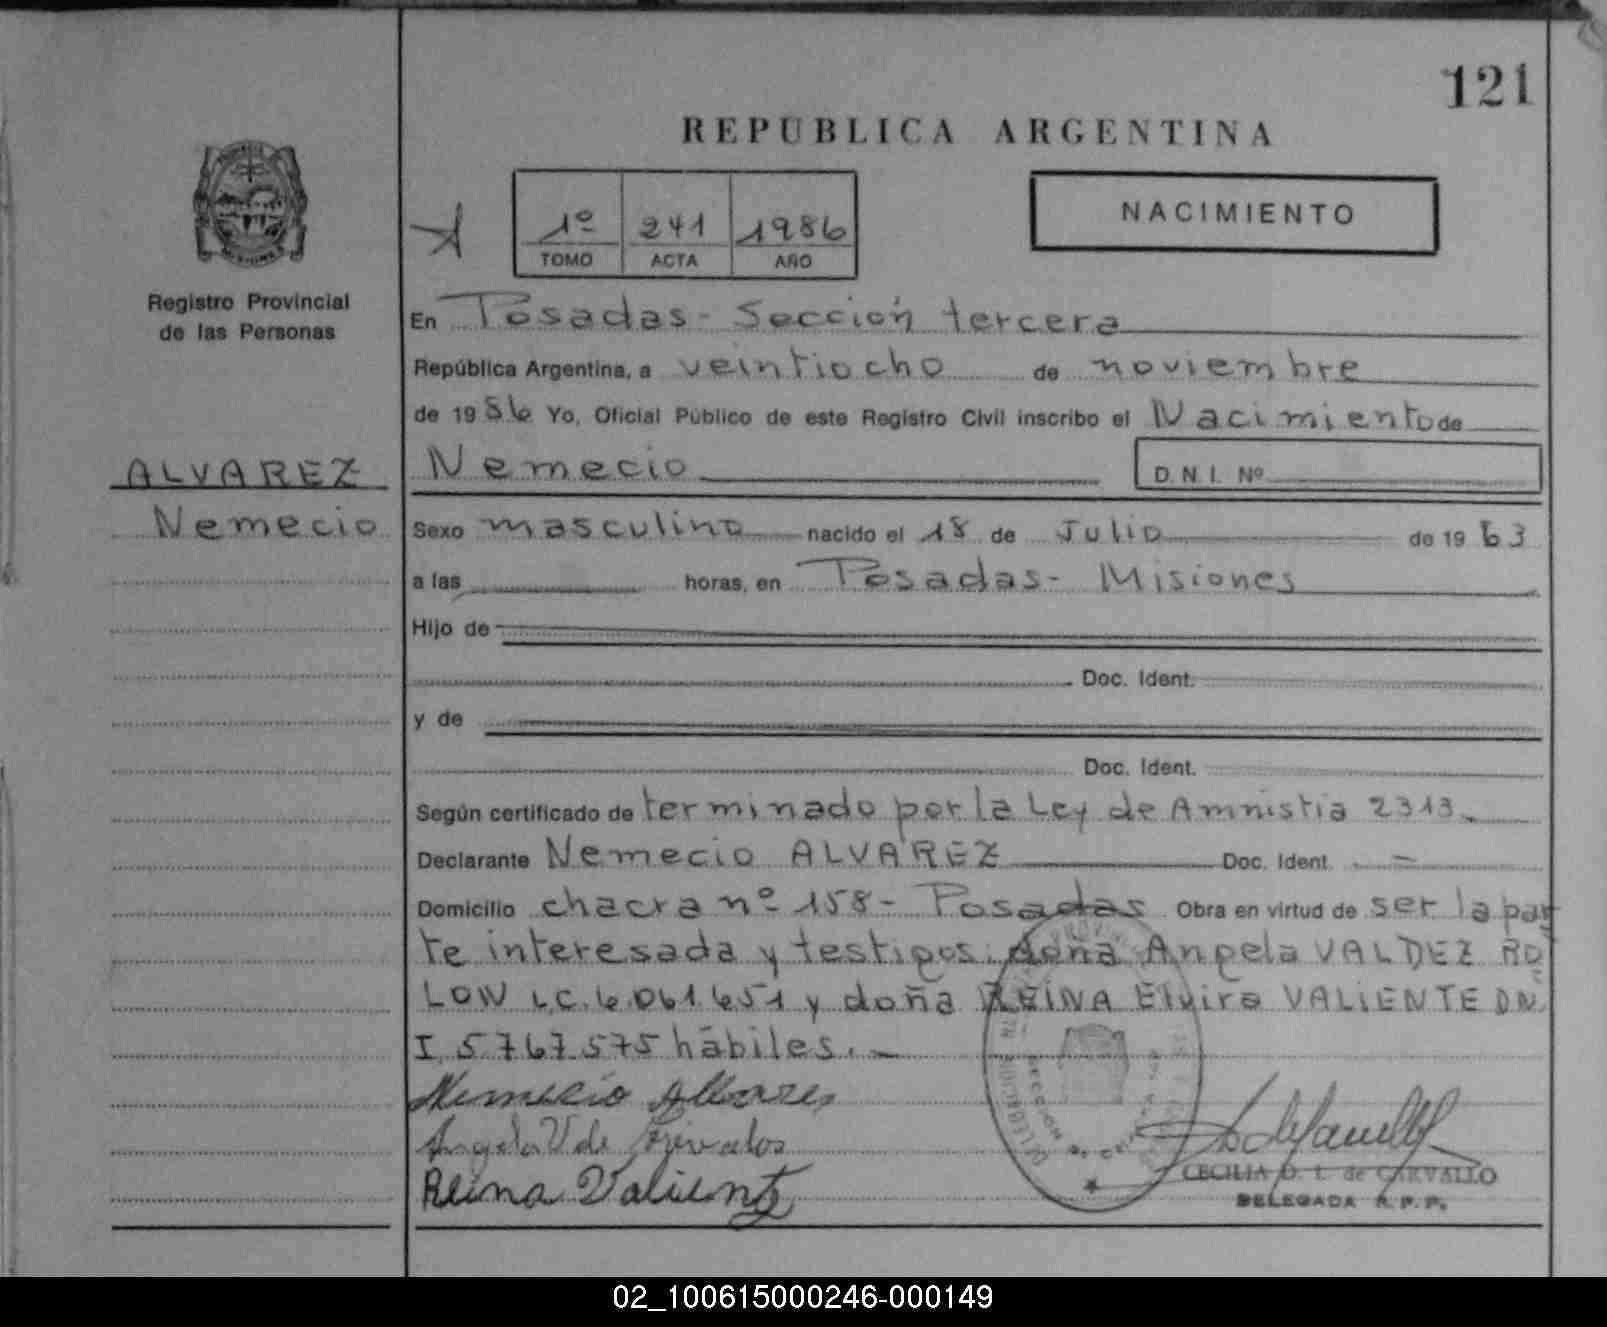 121
REPUBLICA ARGENTINA
1º 241 1986
TOMO ACTA AÑO
NACIMIENTO
Registro Provincial
de las Personas
En Posadas - Sección tercera
República Argentina, a veintiocho de noviembre
de 1986 Yo, Oficial Público de este Registro Civil inscribo el Nacimiento de
ALVAREZ
Nemecio
Nemecio D.N.I. Nº
Sexo masculino nacido el 18 de Julio de 1963
a las horas, en Posadas - Misiones
Hijo de
Doc. Ident.
y de
Doc. Ident.
Según certificado de terminado por la Ley de Amnistia 2313.
Declarante Nemecio ALVAREZ Doc. Ident. -
Domicilio chacra nº 158 - Posadas Obra en virtud de ser la par
te interesada y testigos: doña Angela VALDEZ RO
LON L.C. 6.061.651 y doña REINA Elvira VALIENTE DN
I. 5.767.575 hábiles. -
Nemecio Alvarez
Angela V de
Reina Valiente
CECILIA D. L. de CARVALLO
DELEGADA R. P. P.
02_100615000246-000149